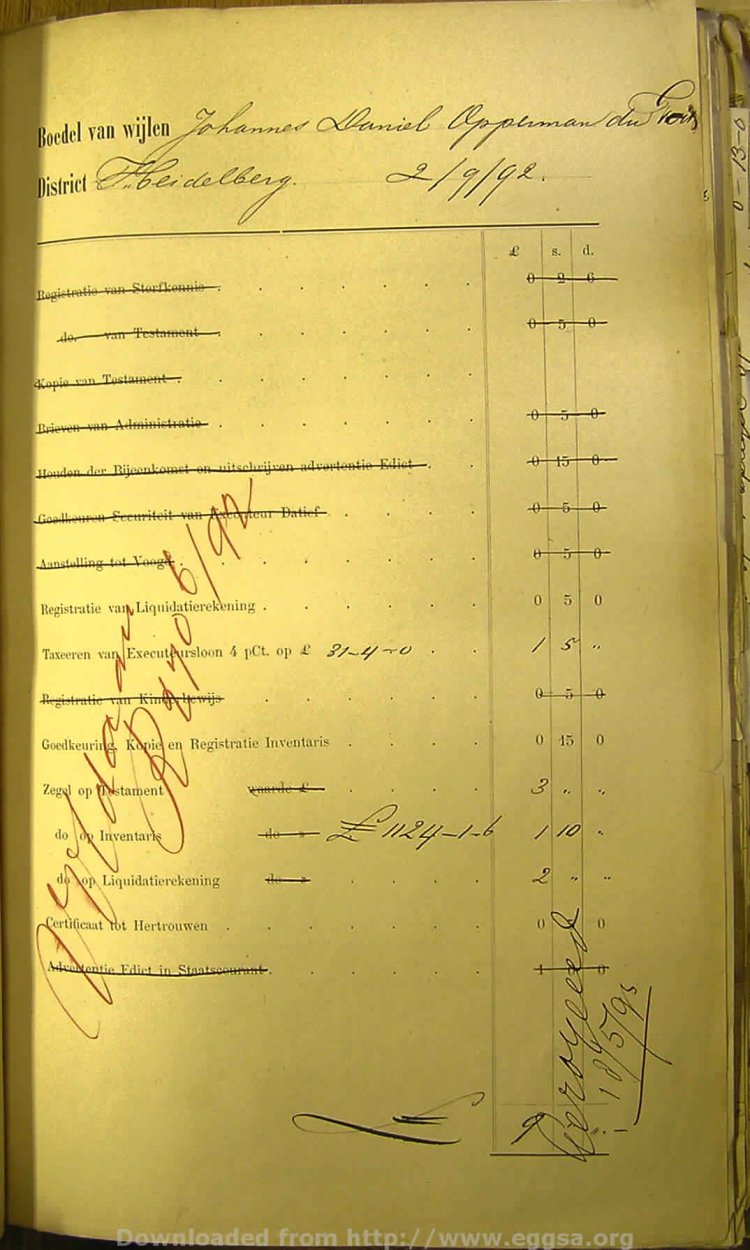 Boedel van wijlen Johannes Daniel Opperman du Toit
District Heidelberg. 2/9/92.
£ s. d.
Registratie van Sterfkennis . 0 2 6
do. van Testament . 0 5 0
Kopie van Testament .
Brieven van Administratie . 0 5 0
Houden der Bijeenkomst en uitschrijven advertentie Edict . 0 15 0
Goedkeuren Securiteit van Executeur Datief . 0 5 0
Aanstelling tot Voogd . 0 5 0
Registratie van Liquidatierekening . 0 5 0
Taxeeren van Executeursloon 4 pCt. op £ 31-4-0 . 1 5 "
Registratie van Kinderbewijs 0 5 0
Goedkeuring, Kopie en Registratie Inventaris . 0 15 0
Zegel op Testament waarde £ . 3 " "
do op Inventaris do " £ 1124-1-6 1 10 "
do op Liquidatierekening do " . 2 " "
Certificaat tot Hertrouwen . 0 0
Advertentie Edict in Staatscourant . 1 0
6/92
18/5/93
9
0-13-0
Downloaded from http://www.eggsa.org